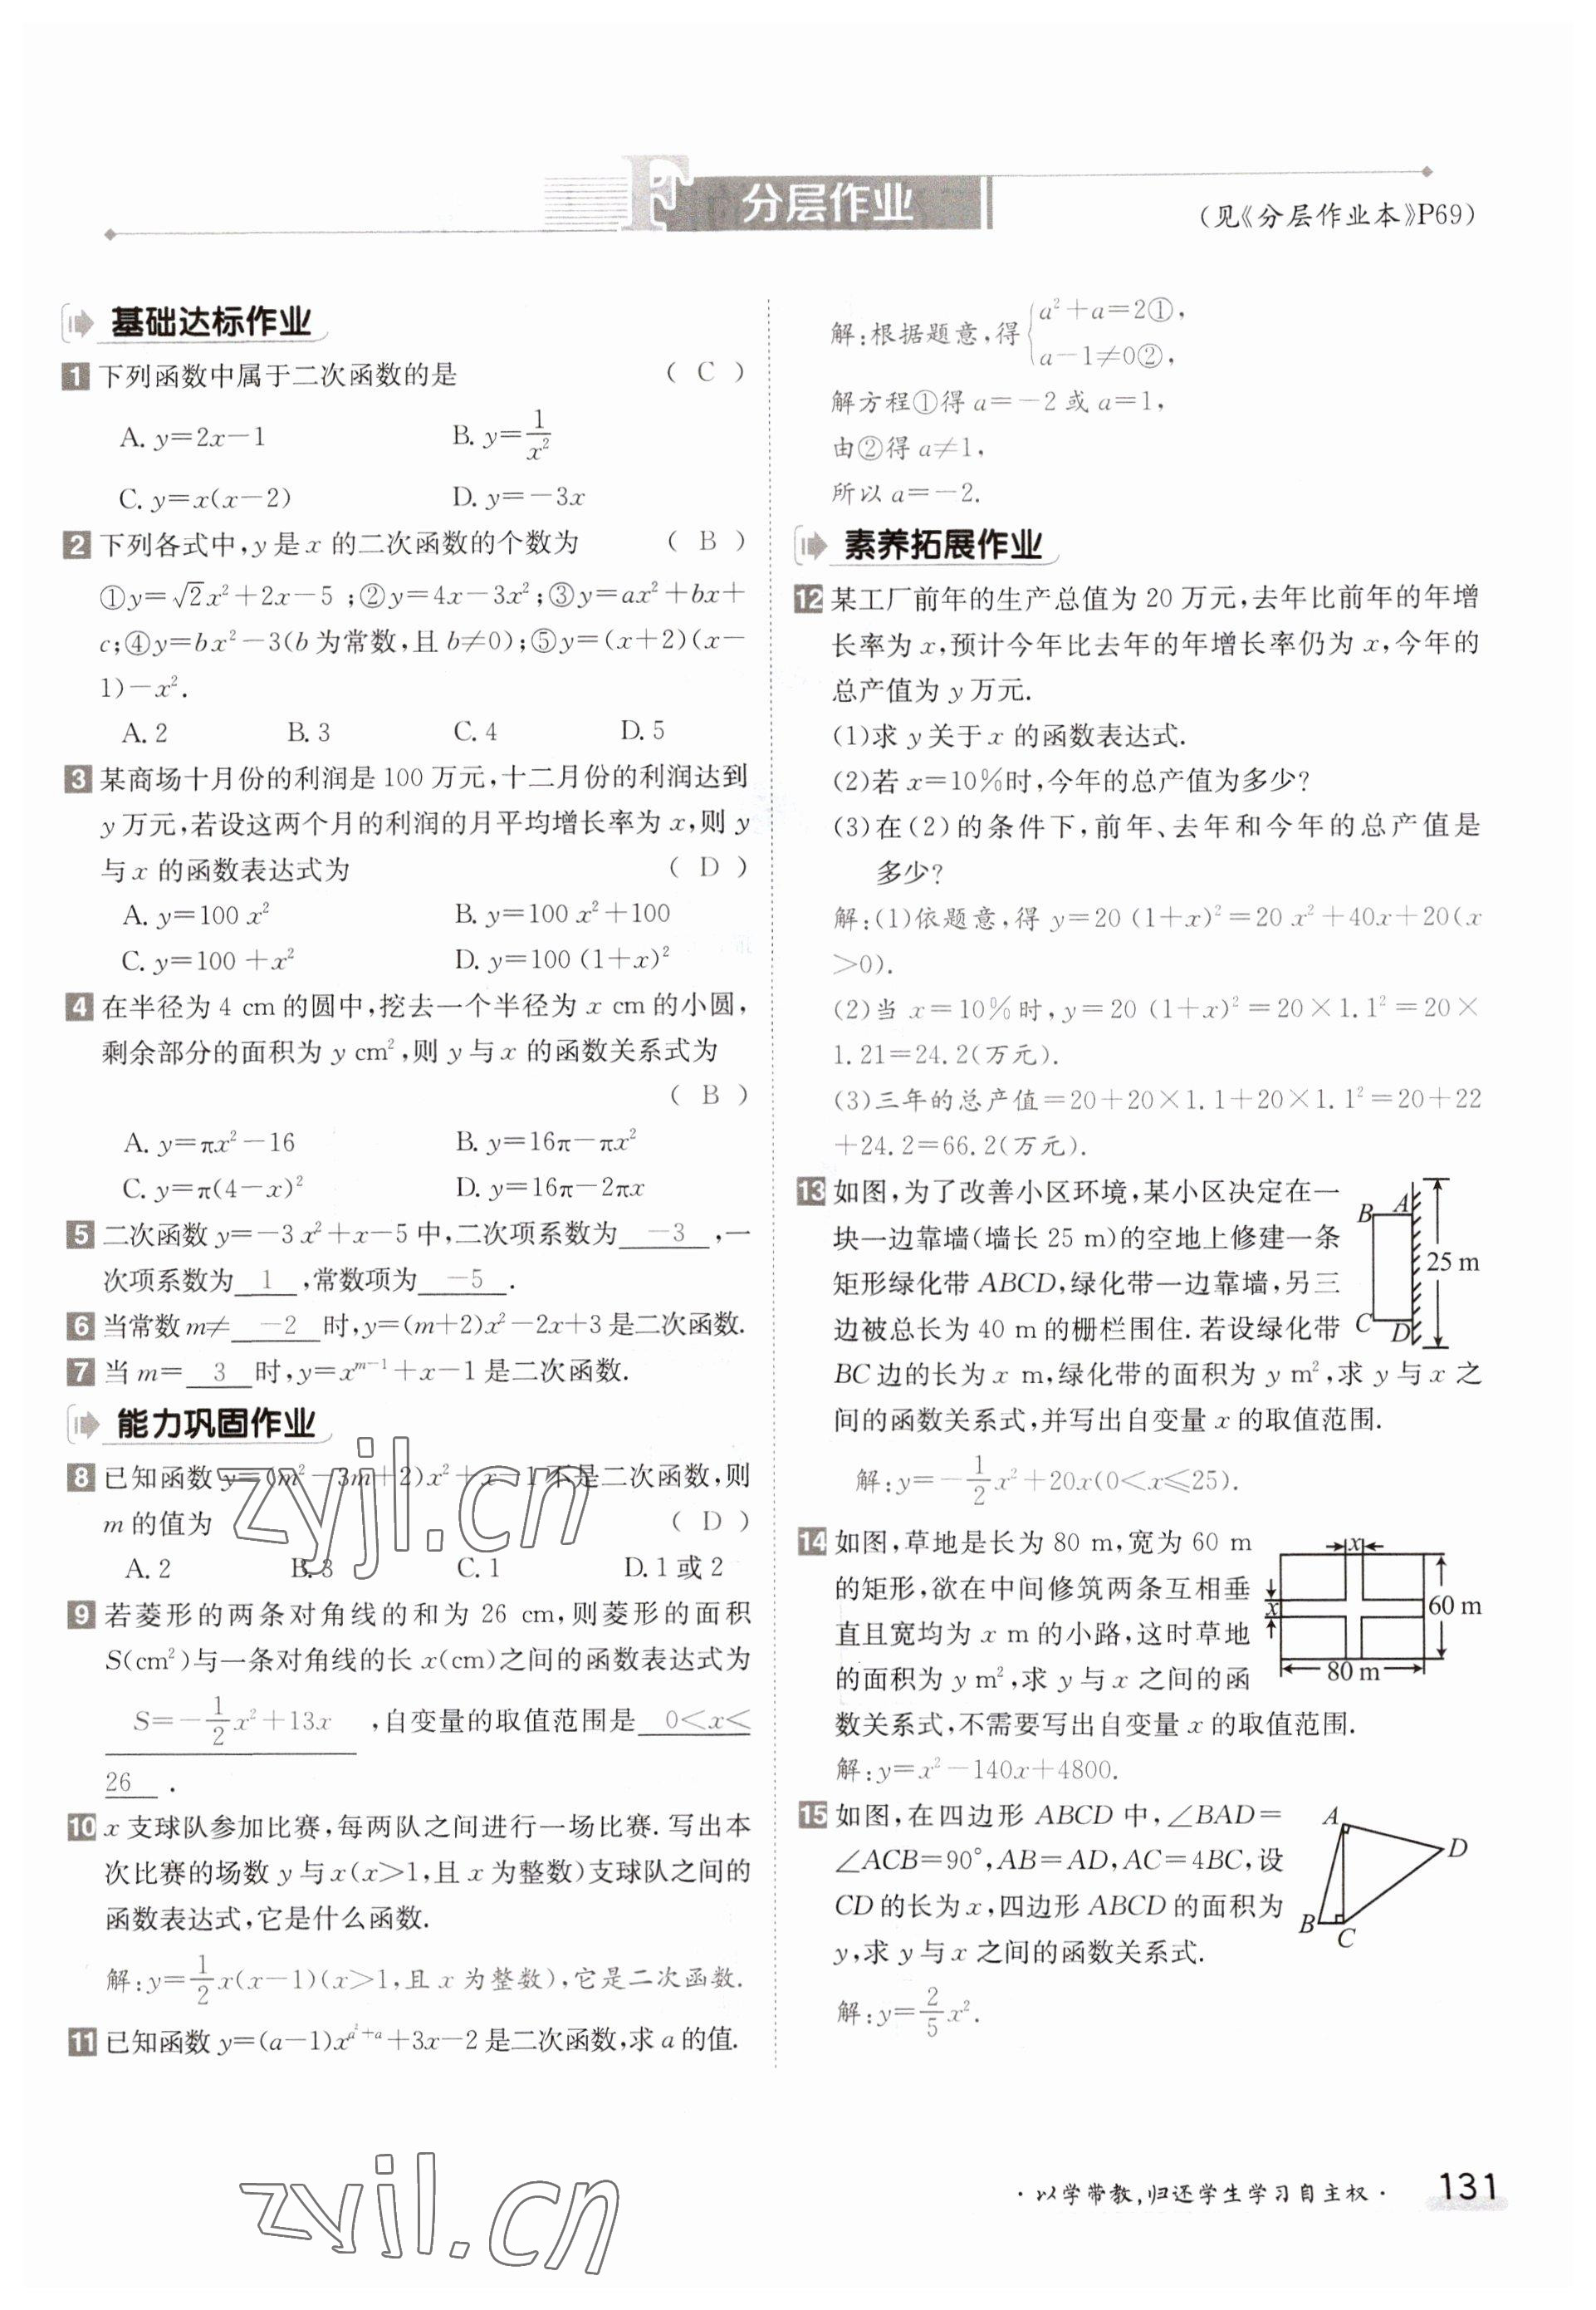 F 分层作业
(见《分层作业本》P69)
基础达标作业
1 下列函数中属于二次函数的是 ( C )
A. y=2x-1 B. y=1/x²
C. y=x(x-2) D. y=-3x
2 下列各式中,y 是 x 的二次函数的个数为 ( B )
①y=√2x²+2x-5 ;②y=4x-3x²;③y=ax²+bx+
c;④y=bx²-3(b 为常数,且 b≠0);⑤y=(x+2)(x-
1)-x².
A. 2 B. 3 C. 4 D. 5
3 某商场十月份的利润是 100 万元,十二月份的利润达到
y 万元,若设这两个月的利润的月平均增长率为 x,则 y
与 x 的函数表达式为 ( D )
A. y=100 x² B. y=100 x²+100
C. y=100 +x² D. y=100 (1+x)²
4 在半径为 4 cm 的圆中,挖去一个半径为 x cm 的小圆,
剩余部分的面积为 y cm²,则 y 与 x 的函数关系式为
( B )
A. y=πx²-16 B. y=16π-πx²
C. y=π(4-x)² D. y=16π-2πx
5 二次函数 y=-3 x²+x-5 中,二次项系数为 -3 ,一
次项系数为 1 ,常数项为 -5 .
6 当常数 m≠ -2 时,y=(m+2)x²-2x+3 是二次函数.
7 当 m= 3 时,y=xᵐ⁻¹+x-1 是二次函数.
能力巩固作业
8 已知函数 y=(m²-3m+2)x²+x-1 不是二次函数,则
m 的值为 ( D )
A. 2 B. 3 C. 1 D. 1 或 2
9 若菱形的两条对角线的和为 26 cm,则菱形的面积
S(cm²)与一条对角线的长 x(cm)之间的函数表达式为
S=-1/2x²+13x ,自变量的取值范围是 0<x<
26 .
10 x 支球队参加比赛,每两队之间进行一场比赛. 写出本
次比赛的场数 y 与 x(x>1,且 x 为整数)支球队之间的
函数表达式,它是什么函数.
解:y=1/2x(x-1)(x>1,且 x 为整数),它是二次函数.
11 已知函数 y=(a-1)x^(a²+a)+3x-2 是二次函数,求 a 的值.
解:根据题意,得{a²+a=2①,
a-1≠0②,
解方程①得 a=-2 或 a=1,
由②得 a≠1,
所以 a=-2.
素养拓展作业
12 某工厂前年的生产总值为 20 万元,去年比前年的年增
长率为 x,预计今年比去年的年增长率仍为 x,今年的
总产值为 y 万元.
(1)求 y 关于 x 的函数表达式.
(2)若 x=10%时,今年的总产值为多少?
(3)在(2)的条件下,前年、去年和今年的总产值是
多少?
解:(1)依题意,得 y=20 (1+x)²=20 x²+40x+20(x
>0).
(2)当 x=10%时,y=20 (1+x)²=20×1.1²=20×
1.21=24.2(万元).
(3)三年的总产值=20+20×1.1+20×1.1²=20+22
+24.2=66.2(万元).
13 如图,为了改善小区环境,某小区决定在一
块一边靠墙(墙长 25 m)的空地上修建一条
矩形绿化带 ABCD,绿化带一边靠墙,另三
边被总长为 40 m 的栅栏围住. 若设绿化带
BC 边的长为 x m,绿化带的面积为 y m²,求 y 与 x 之
间的函数关系式,并写出自变量 x 的取值范围.
B A
25 m
C D
解:y=-1/2x²+20x(0<x≤25).
14 如图,草地是长为 80 m,宽为 60 m
的矩形,欲在中间修筑两条互相垂
直且宽均为 x m 的小路,这时草地
的面积为 y m²,求 y 与 x 之间的函
数关系式,不需要写出自变量 x 的取值范围.
x
x
60 m
80 m
解:y=x²-140x+4800.
15 如图,在四边形 ABCD 中,∠BAD=
∠ACB=90°,AB=AD,AC=4BC,设
CD 的长为 x,四边形 ABCD 的面积为
y,求 y 与 x 之间的函数关系式.
A
D
B
C
解:y=2/5x².
zyjl.cn
zyjl.cn
·以学带教,归还学生学习自主权· 131